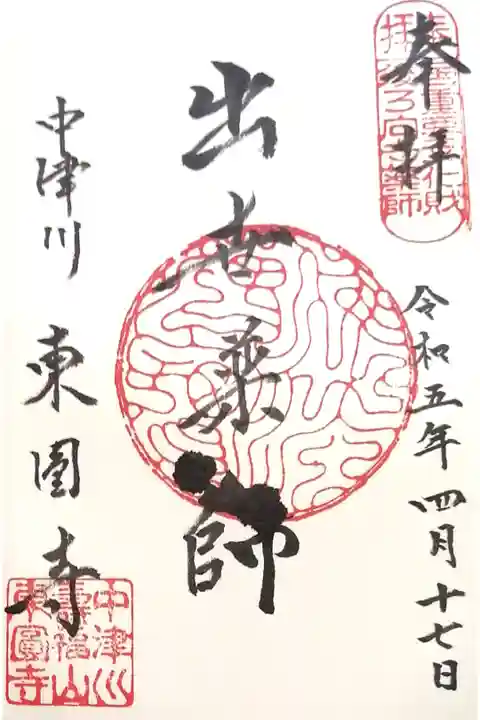 奉拝
令和五年四月十七日
出世薬師
中津川 東圓寺
中津川
壽福山
東圓寺